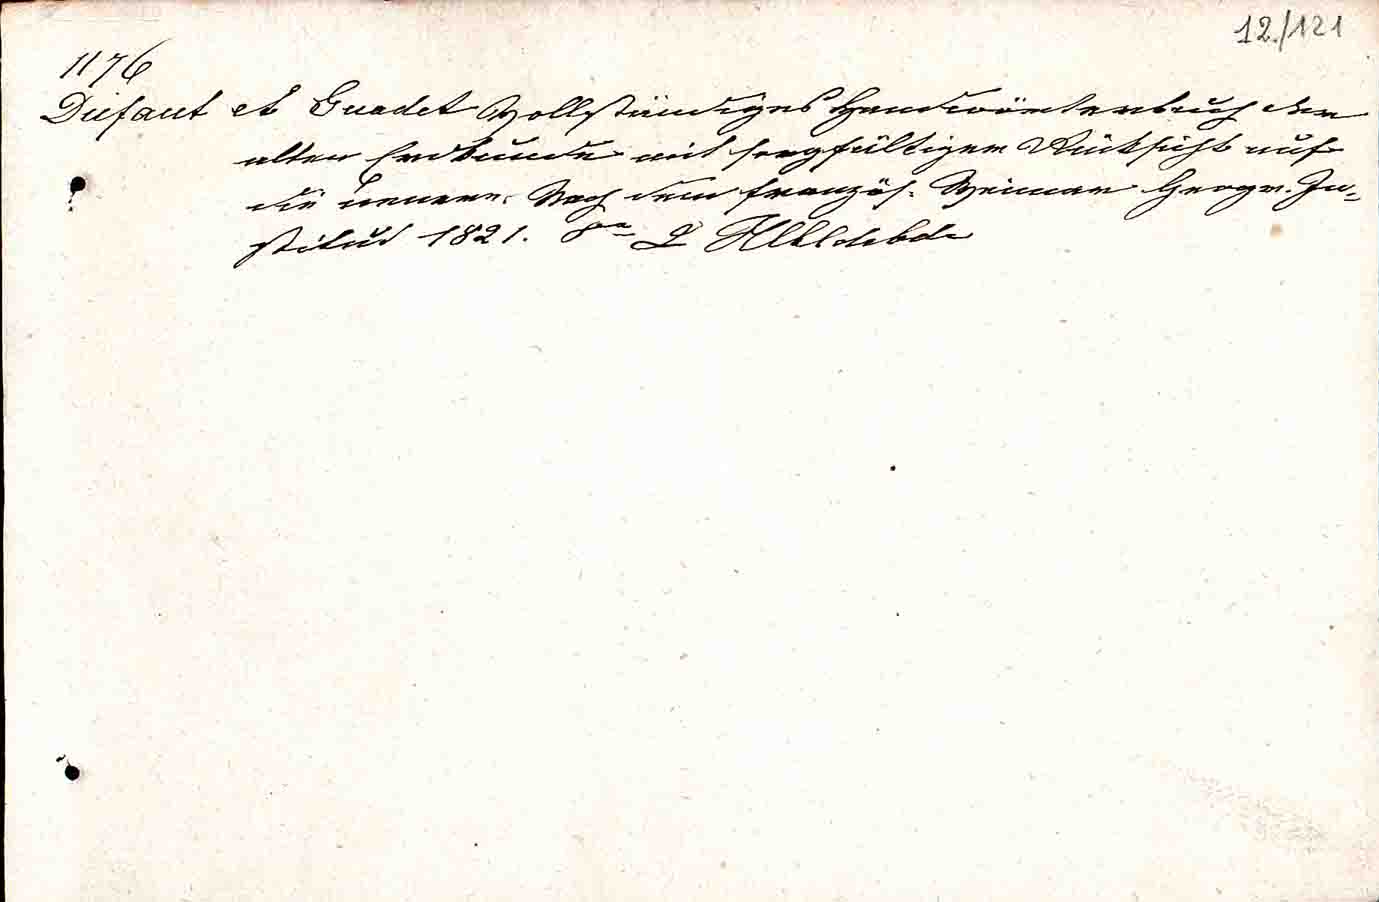 12/121
1176
Dufaut et Guadet Vollständiges Handwörterbuch der
alten Erdkunde mit sorgfältiger Rücksicht auf
die neuere. Nach dem französ. Weimar Geogr. In-
stitut 1821. 8°